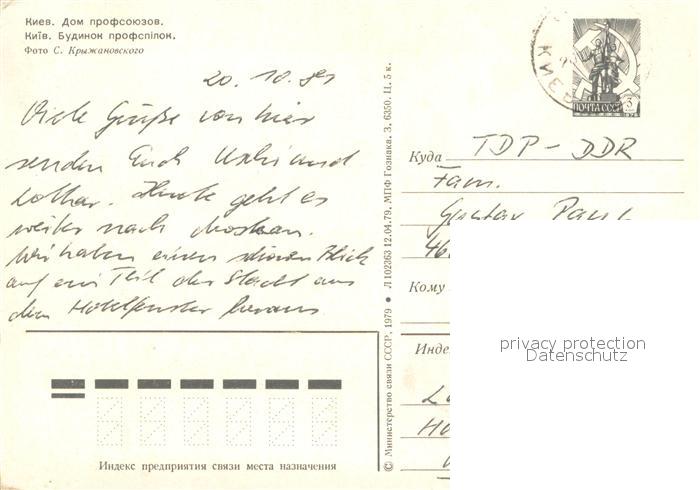 Киев. Дом профсоюзов.
Київ. Будинок профспілок.
Фото С. Крыжановского
20. 10. 81
Viele Grüße von hier
senden Euch Uschi und
Lothar. Heute geht es
weiter nach Moskau.
Wir haben einen schönen Blick
auf ein Teil der Stadt aus
dem Hotelfenster heraus.
Индекс предприятия связи места назначения
© Министерство связи СССР, 1979 ● Л 102363 12.04.79. МПФ Гознака. З. 6350. Ц. 5 к.
КИЕВ
ПОЧТА СССР
Куда TDP - DDR
Fam.
Gustav Paul
46
Кому
Инде
privacy protection
Datenschutz